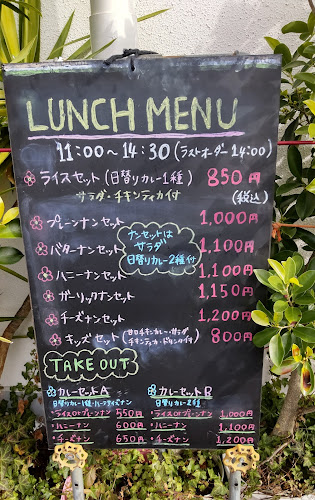 LUNCH MENU
11:00〜14:30 (ラストオーダー 14:00)
ライスセット (日替りカレー1種) 850円
サラダ・チキンティカ付 (税込)
プレーンナンセット 1,000円
バターナンセット 1,100円
ハニーナンセット 1,100円
ガーリックナンセット 1,150円
チーズナンセット 1,200円
ナンセットは
サラダ
日替りカレー2種付
キッズセット (甘口チキンカレー・サラダ
チキンティカ・ドリンク付) 800円
TAKE OUT
カレーセットA
日替りカレー1種・ハーフライズナン
・ライスorプレーンナン 550円
・ハニーナン 600円
・チーズナン 650円
カレーセットB
日替りカレー2種
・ライスorプレーンナン 1,000円
・ハニーナン 1,100円
・チーズナン 1,200円